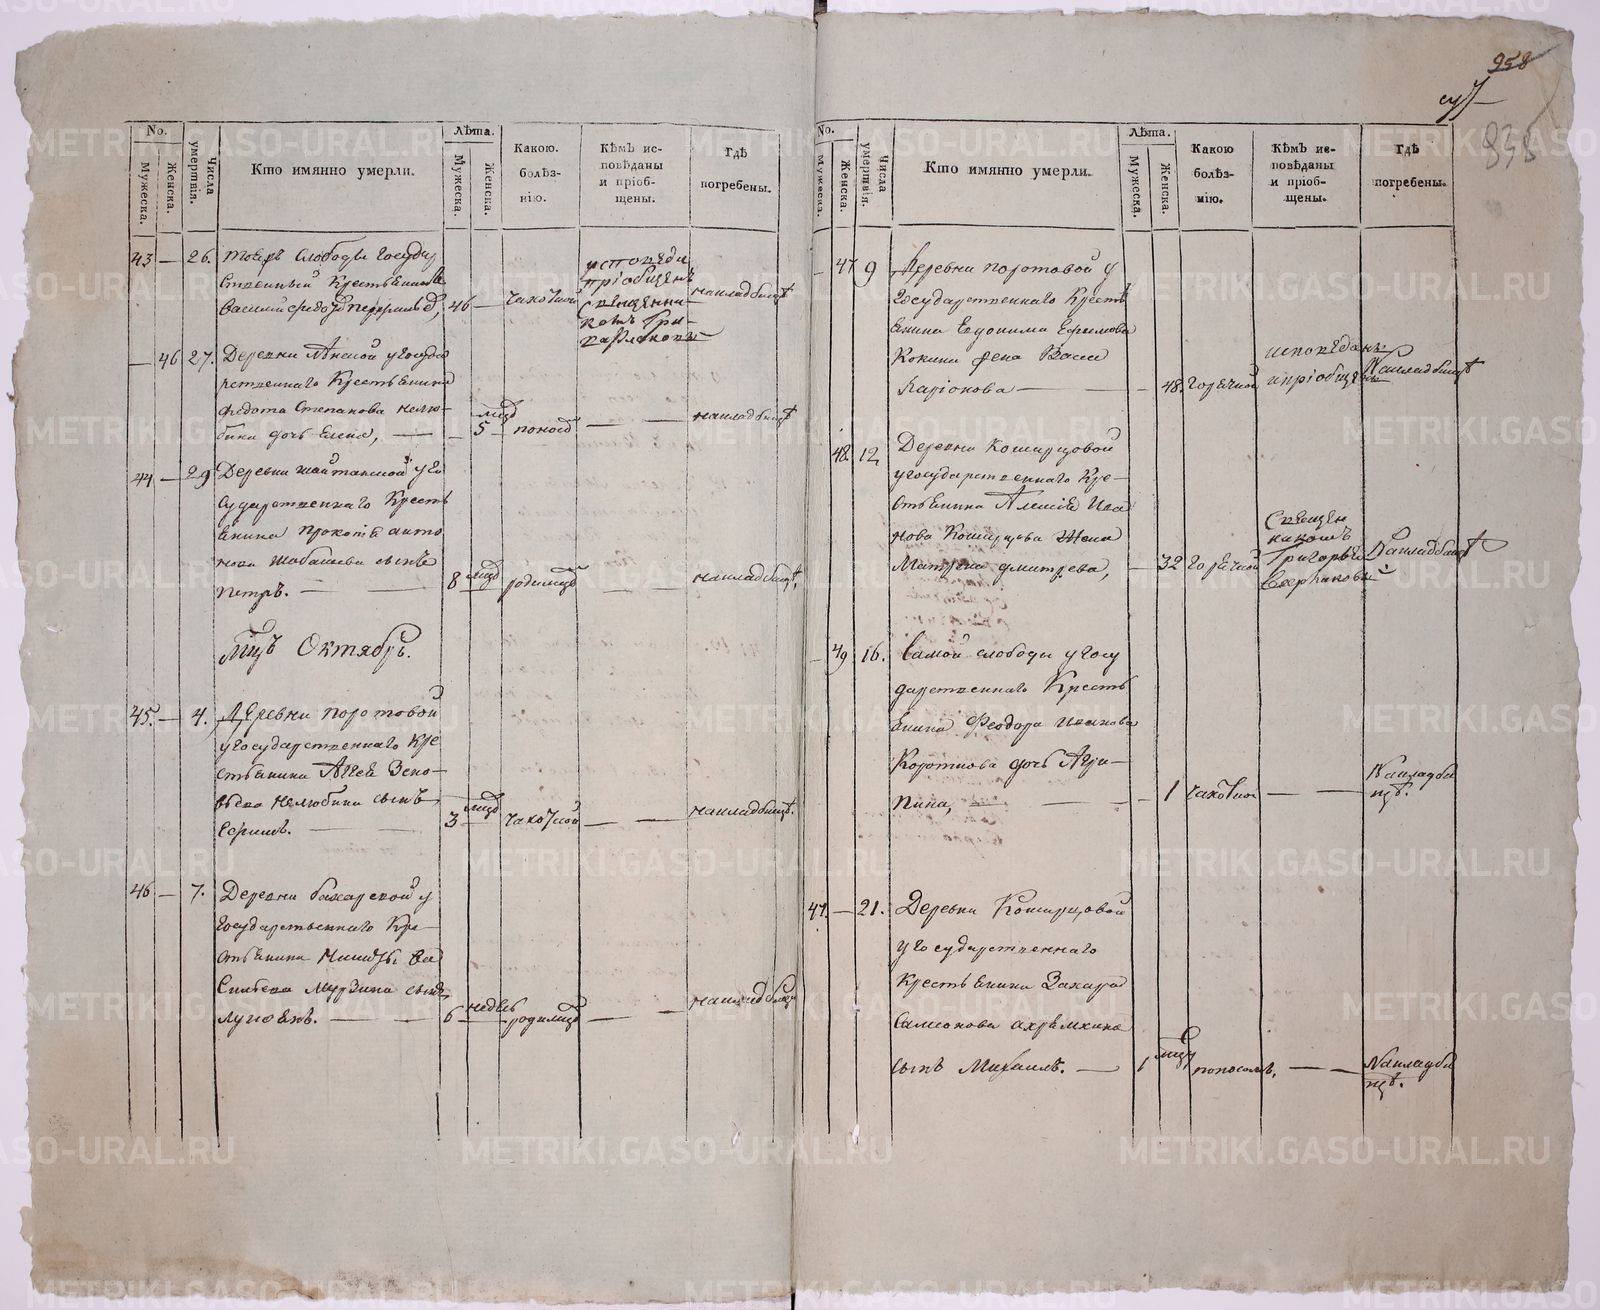 958
935
No.
Мужеска.
Женска.
Числа умертвія.
Кто имянно умерли.
Лѣта.
Мужеска.
Женска.
Какою.
болѣз-
нію.
Кѣмъ ис-
повѣданы
и пріоб-
щены.
Гдѣ
погребены.
43 — 26.
слободы государ
ственный Крестьянинъ
Василий 46 — чахоткой
исповѣд
пріобщенъ
Священни
комъ Гри
накладбищѣ
— 46 27. Деревни у государ
ственнаго Крестьянина
Федота Степанова Нелю-
бина дочь Елена, — мцв
5 поносъ — — накладбищѣ
44 — 29 Деревни шайтанской у го
сударственнаго Кресть
янина Прокопія анто
нова Шабашева сынъ
Петръ. — — 8 мцв родимцѣ — — накладбищѣ.
Мцъ Октябрь.
45. — 4. Деревни поротовой
у государственнаго Кре
стьянина Агѣя Зено-
вьева Нелюбина сынъ
Ефимъ. — 3 мцв чахоткой — — накладбищѣ.
46 — 7. Деревни бахаревой у
государственнаго Кре-
стьянина Никиты Ва
сильева Мурзина сынъ
Лукоянъ. — — 6 недѣль родимцѣ — — накладбищѣ
No.
Мужеска.
Женска.
Числа умертвія.
Кто имянно умерли.
Лѣта.
Мужеска.
Женска.
Какою
болѣз-
нію.
Кѣмъ ис-
повѣданы
и пріоб-
щены.
Гдѣ
погребены.
— 47 9 Деревни поротовой у
государственнаго Кресть
янина Евдокима Ефимова
Кокина жена Васса
Каріонова — — 48. горячкой
исповѣданъ
и пріобщенъ
Накладбищѣ
48. 12 Деревни Кошурцовой
у государственнаго Кре-
стьянина Алексѣя Ива
нова Кошурцова Жена
Матрена Дмитрева, — 32 горячкой
Священ
никомъ
Григорьем
Накладбищѣ
— 49 16. Самой слободы у госу
дарственнаго Кресть
янина Феодора Иванова
Короткова дочь Агри-
пина, — — 1 чахоткой — — Накладби
щѣ.
47. — 21. Деревни Кошурцовой
у государственнаго
Крестьянина Захара
Самсонова
сынъ Михаилъ. — 1 мцъ поносомъ, — — Накладби
щѣ.
METRIKI.GASO-URAL.RU